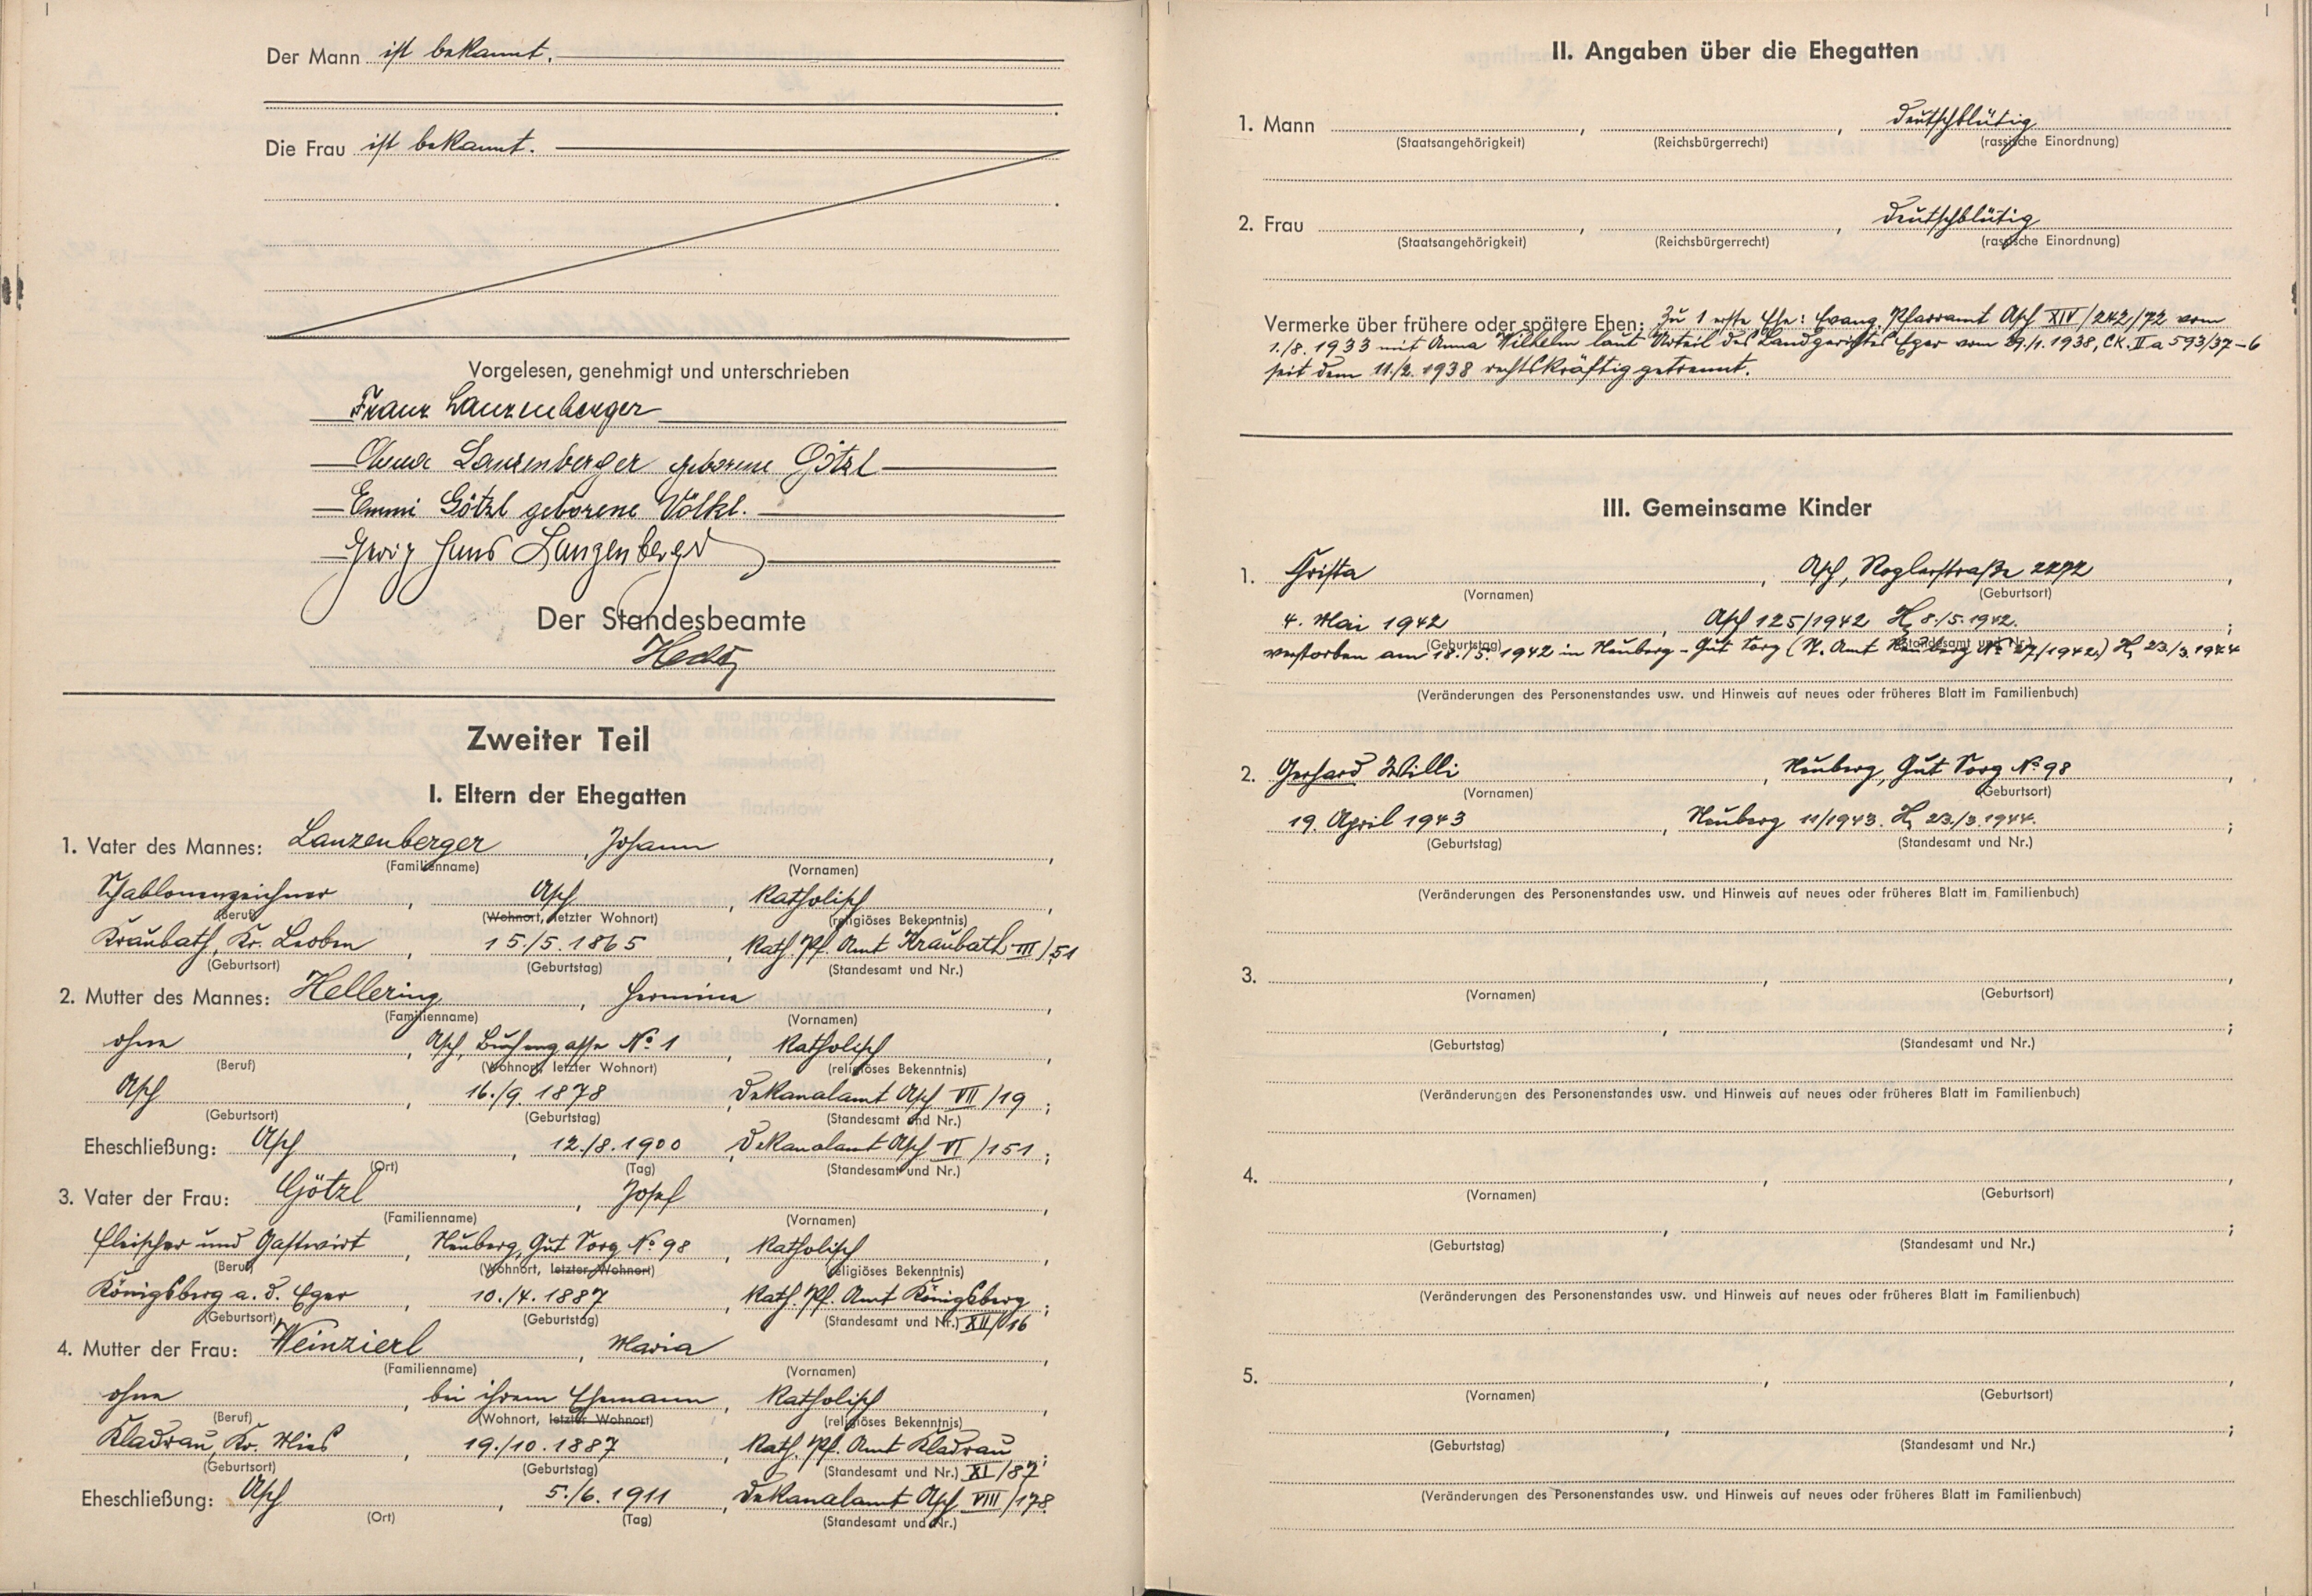 Der Mann ist bekannt.
Die Frau ist bekannt.
Vorgelesen, genehmigt und unterschrieben
Franz Lanzenberger
Lanzenberger geborene Götzl
Emmi Götzl geborene Völkl.
Georg Hans Lanzenberger
Der Standesbeamte
Zweiter Teil
I. Eltern der Ehegatten
1. Vater des Mannes: Lanzenberger, Johann
(Familienname) (Vornamen)
Schablonenzeichner, Asch, katholisch,
(Beruf) (Wohnort, letzter Wohnort) (religiöses Bekenntnis)
Kraubath, Kr. Leoben, 15./5. 1865, Kath. Pf. Amt Kraubath III/51
(Geburtsort) (Geburtstag) (Standesamt und Nr.)
2. Mutter des Mannes: Hellering, Hermine
(Familienname) (Vornamen)
ohne, Asch, No 1, katholisch,
(Beruf) (Wohnort, letzter Wohnort) (religiöses Bekenntnis)
Asch, 16./9. 1878, Dekanalamt Asch VII/19;
(Geburtsort) (Geburtstag) (Standesamt und Nr.)
Eheschließung: Asch, 12./8. 1900, Dekanalamt Asch VI/151;
(Ort) (Tag) (Standesamt und Nr.)
3. Vater der Frau: Götzl, Josef
(Familienname) (Vornamen)
Fleischer und Gastwirt, Neuberg, Gut Sorg No 98, katholisch,
(Beruf) (Wohnort, letzter Wohnort) (religiöses Bekenntnis)
Königsberg a. d. Eger, 10./4. 1887, Kath. Pf. Amt Königsberg;
(Geburtsort) (Geburtstag) (Standesamt und Nr.) XII/16
4. Mutter der Frau: Weinzierl, Maria
(Familienname) (Vornamen)
ohne, bei ihrem Ehemann, katholisch,
(Beruf) (Wohnort, letzter Wohnort) (religiöses Bekenntnis)
Kladrau, Kr. Mies, 19./10. 1887, Kath. Pf. Amt Kladrau;
(Geburtsort) (Geburtstag) (Standesamt und Nr.) XI/87
Eheschließung: Asch, 5./6. 1911, Dekanalamt Asch VIII/178
(Ort) (Tag) (Standesamt und Nr.)
II. Angaben über die Ehegatten
1. Mann , , deutschblütig
(Staatsangehörigkeit) (Reichsbürgerrecht) (rassische Einordnung)
2. Frau , , deutschblütig
(Staatsangehörigkeit) (Reichsbürgerrecht) (rassische Einordnung)
Vermerke über frühere oder spätere Ehen: Zu 1 erste Ehe: Evang. Pfarramt Asch XIV/242/72 vom
1./8. 1933 mit Anna Wilhelm laut Urteil des Landgerichtes Eger vom 29./1. 1938, CK. II a 593/37-6
seit dem 11./2. 1938 rechtskräftig getrennt.
III. Gemeinsame Kinder
1. Christa, Asch, Roglerstraße 2272,
(Vornamen) (Geburtsort)
4. Mai 1942, Asch 125/1942 H, 8./5. 1942.;
(Geburtstag) (Standesamt und Nr.)
verstorben am 18./5. 1942 in Neuberg - Gut Sorg (St. Amt Neuberg No 27/1942) H, 23./3. 1944
(Veränderungen des Personenstandes usw. und Hinweis auf neues oder früheres Blatt im Familienbuch)
2. Gerhard Willi, Neuberg, Gut Sorg No 98,
(Vornamen) (Geburtsort)
19. April 1943, Neuberg 11/1943. H, 23./3. 1944.;
(Geburtstag) (Standesamt und Nr.)
(Veränderungen des Personenstandes usw. und Hinweis auf neues oder früheres Blatt im Familienbuch)
3. , ,
(Vornamen) (Geburtsort)
, ;
(Geburtstag) (Standesamt und Nr.)
(Veränderungen des Personenstandes usw. und Hinweis auf neues oder früheres Blatt im Familienbuch)
4. , ,
(Vornamen) (Geburtsort)
, ;
(Geburtstag) (Standesamt und Nr.)
(Veränderungen des Personenstandes usw. und Hinweis auf neues oder früheres Blatt im Familienbuch)
5. , ,
(Vornamen) (Geburtsort)
, ;
(Geburtstag) (Standesamt und Nr.)
(Veränderungen des Personenstandes usw. und Hinweis auf neues oder früheres Blatt im Familienbuch)